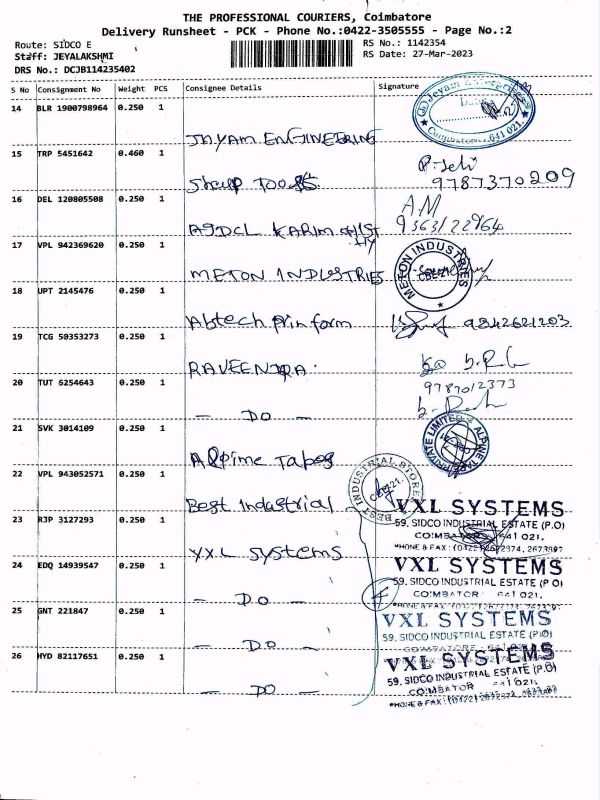 THE PROFESSIONAL COURIERS, Coimbatore
Delivery Runsheet - PCK - Phone No.:0422-3505555 - Page No.:2
Route: SIDCO E
RS No.: 1142354
Staff: JEYALAKSHMI
RS Date: 27-Mar-2023
DRS No.: DCJB114235402
S No Consignment No Weight PCS Consignee Details Signature
14 BLR 1900798964 0.250 1
Jayam Enterprises
641 021.
JAYAM ENGINEERING
15 TRP 5451642 0.460 1
9787370209
Sharp Tools
16 DEL 120805508 0.250 1
A.M
9363122964
17 VPL 942369620 0.250 1
METON INDUSTRIES
METON INDUSTRIES
CBE-21.
18 UPT 2145476 0.250 1
Abtech prinform
9842621203
19 TCG 50353273 0.250 1
RAVEENDRA.
20 TUT 6254643 0.250 1
9787012373
- DO -
21 SVK 3014109 0.250 1
Alpime Tapes
22 VPL 943052571 0.250 1
BEST INDUSTRIAL STORES
CBE-21.
Best Industrial
VXL SYSTEMS
23 RJP 3127293 0.250 1
59, SIDCO INDUSTRIAL ESTATE (P.O)
641 021.
VXL Systems
VXL SYSTEMS
24 EDQ 14939547 0.250 1
59, SIDCO INDUSTRIAL ESTATE (P O)
COIMBATOR 641 021.
- DO -
4
25 GNT 221847 0.250 1
VXL SYSTEMS
59, SIDCO INDUSTRIAL ESTATE (P.O)
- DO -
26 HYD 82117651 0.250 1
VXL SYSTEMS
59, SIDCO INDUSTRIAL ESTATE (P.O)
- DO -